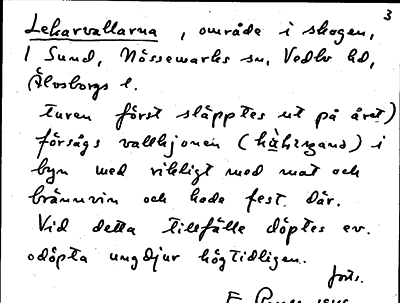 3
Lekarvallarna, område i skogen,
i Sund, Nössemarks sn, Vedbo hd,
Älvsborgs l.
turen först släpptes ut på året)
försågs vallhjonen ( ) i
byn med rikligt med mat och
brännvin och hade fest där.
Vid detta tillfälle döptes ev.
odöpta ungdjur högtidligen.
forts.